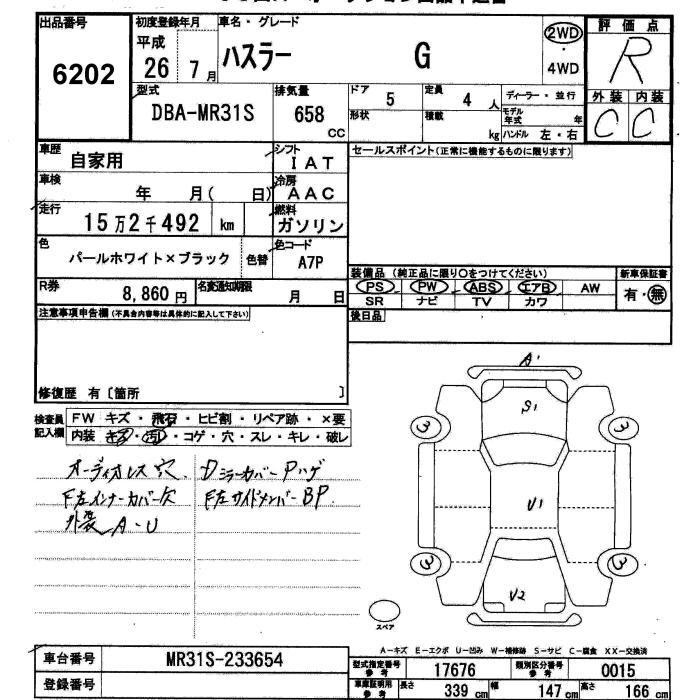 出品番号
6202
初度登録年月
平成
26年 7月
車名・グレード
ハスラー G
2WD
・
4WD
評価点
R
外装 内装
C C
型式
DBA-MR31S
排気量
658
CC
ドア
5
定員
4 人
ディーラー・並行
形状
積載
kg
モデル年式
年
ハンドル 左・右
車歴
自家用
シフト
I A T
セールスポイント(正常に機能するものに限ります)
車検
年 月( 日)
冷房
A A C
走行
15万2千492 km
燃料
ガソリン
色
パールホワイト×ブラック
色替
色コード
A7P
装備品 (純正品に限り○をつけてください)
新車保証書
PS PW ABS エアB AW
有・無
SR ナビ TV カワ
R券
8,860 円
名変通知期限
月 日
後日品
注意事項申告欄(不具合内容等は具体的に記入して下さい)
修復歴 有〔箇所 〕
検査員
記入欄
FW キズ・飛石・ヒビ割・リペア跡・×要
内装 キズ・汚れ・コゲ・穴・スレ・キレ・破レ
オーディオレス穴
Dミラーカバーハゲ
F左インナーカバー欠
F左サイドメンバーBP
外装A-U
A1
S1
3
3
U1
3
3
U2
スペア
A-キズ E-エクボ U-凹み W-補修跡 S-サビ C-腐食 XX-交換済
車台番号
MR31S-233654
登録番号
型式指定番号
参考
17676
類別区分番号
参考
0015
車庫証明用
参考
長さ
339 cm
幅
147 cm
高さ
166 cm